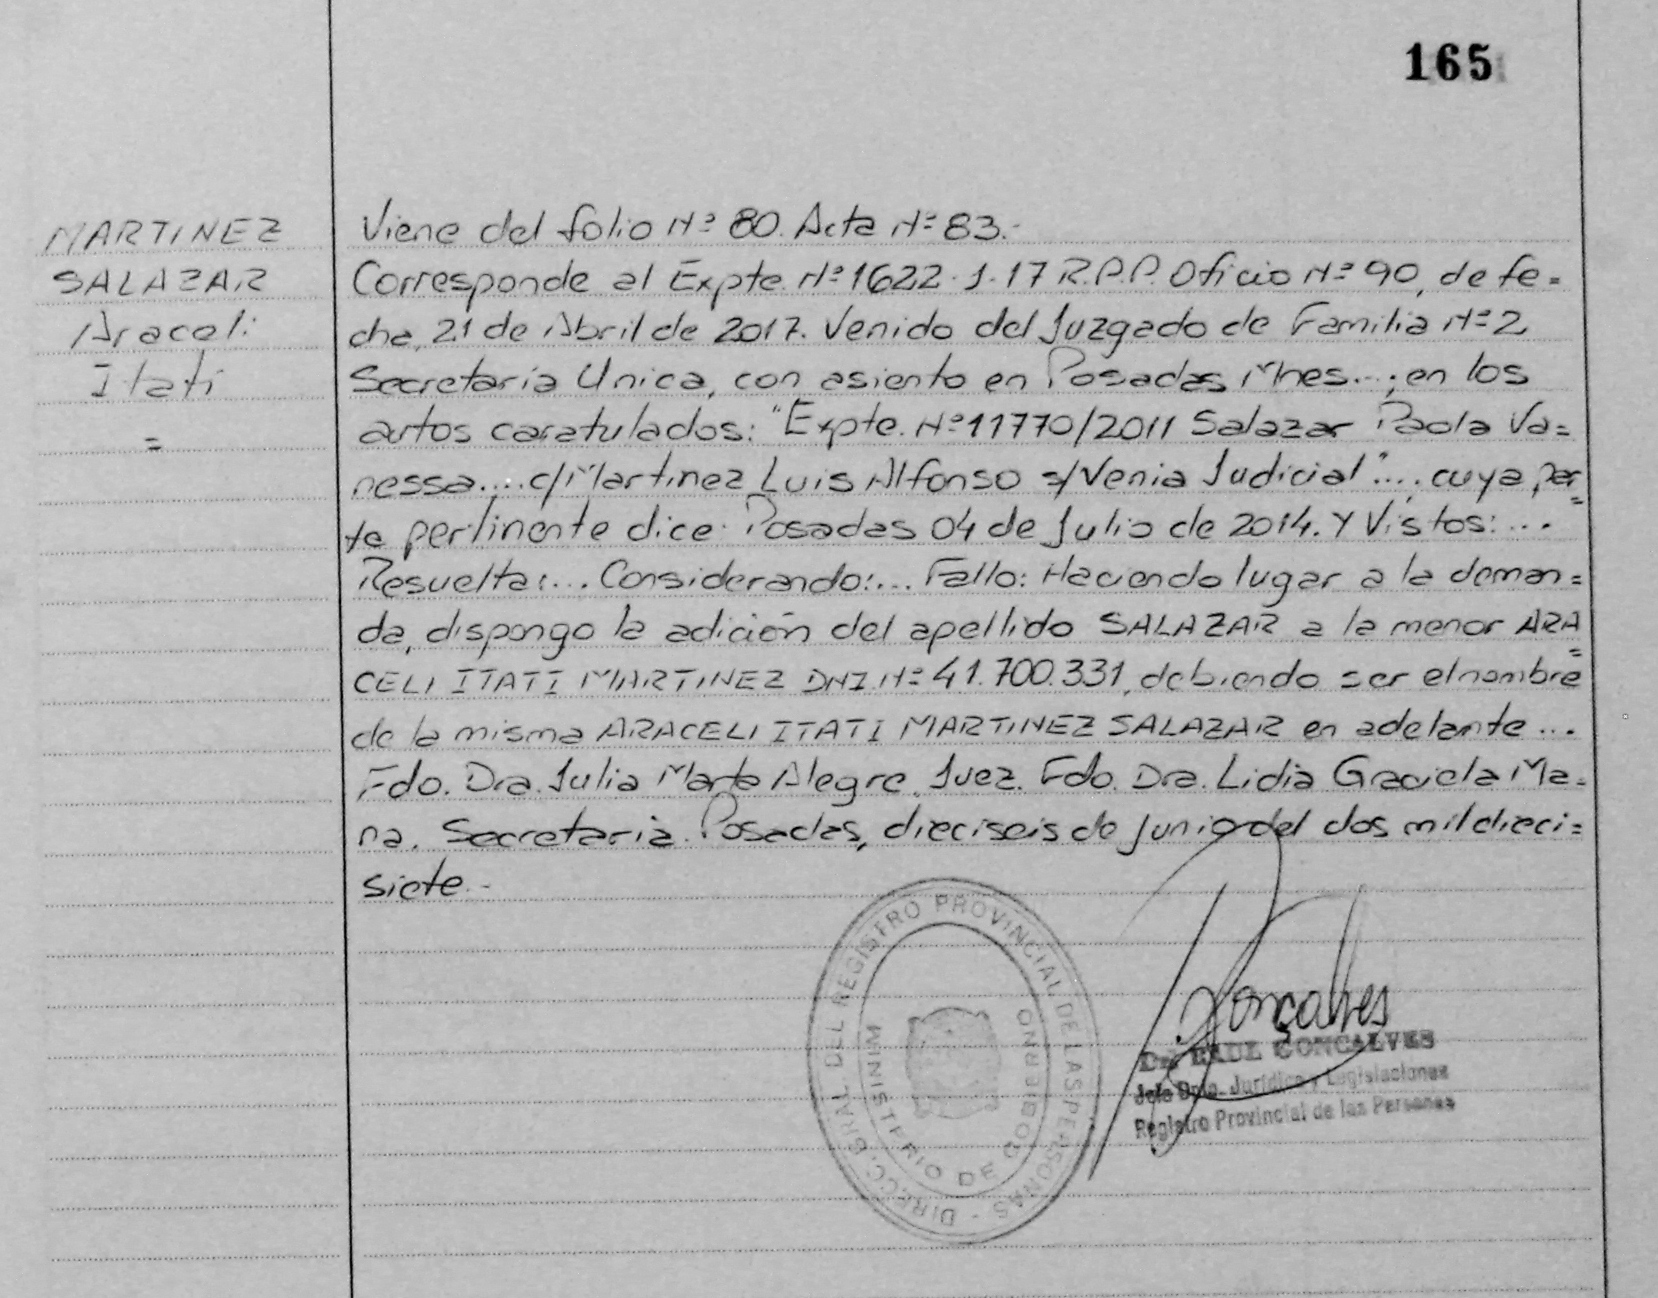 165
MARTINEZ
SALAZAR
Araceli
Itatí
=
Viene del folio Nº 80. Acta Nº 83.-
Corresponde al Expte. Nº 1622-J-17 R.P.P. Oficio Nº 90, de fe=
cha, 21 de Abril de 2017. Venido del Juzgado de Familia Nº 2
Secretaría Unica, con asiento en Posadas Mnes...; en los
autos caratulados: "Expte. Nº 11770/2011 Salazar Paola Va=
nessa.... c/Martinez Luis Alfonso s/Venia Judicial".... cuya par=
te pertinente dice: Posadas 04 de Julio de 2014. Y Vistos:...
Resuelta:... Considerando:... Fallo: Haciendo lugar a la deman=
da, dispongo la adición del apellido SALAZAR a la menor ARA=
CELI ITATI MARTINEZ DNI. Nº 41.700.331, debiendo ser el nombre
de la misma ARACELI ITATI MARTINEZ SALAZAR en adelante...
Fdo. Dra. Julia Marta Alegre. Juez. Fdo. Dra. Lidia Graciela Ma=
na. Secretaria. Posadas, dieciseis de Junio del dos mil dieci=
siete.-
DIRECC. GRAL DEL REGISTRO PROVINCIAL DE LAS PERSONAS -
MINISTERIO DE GOBIERNO
Gonçalves
Dr. RAUL GONCALVES
Jefe Dpto. Jurídico y Legislaciones
Registro Provincial de las Personas